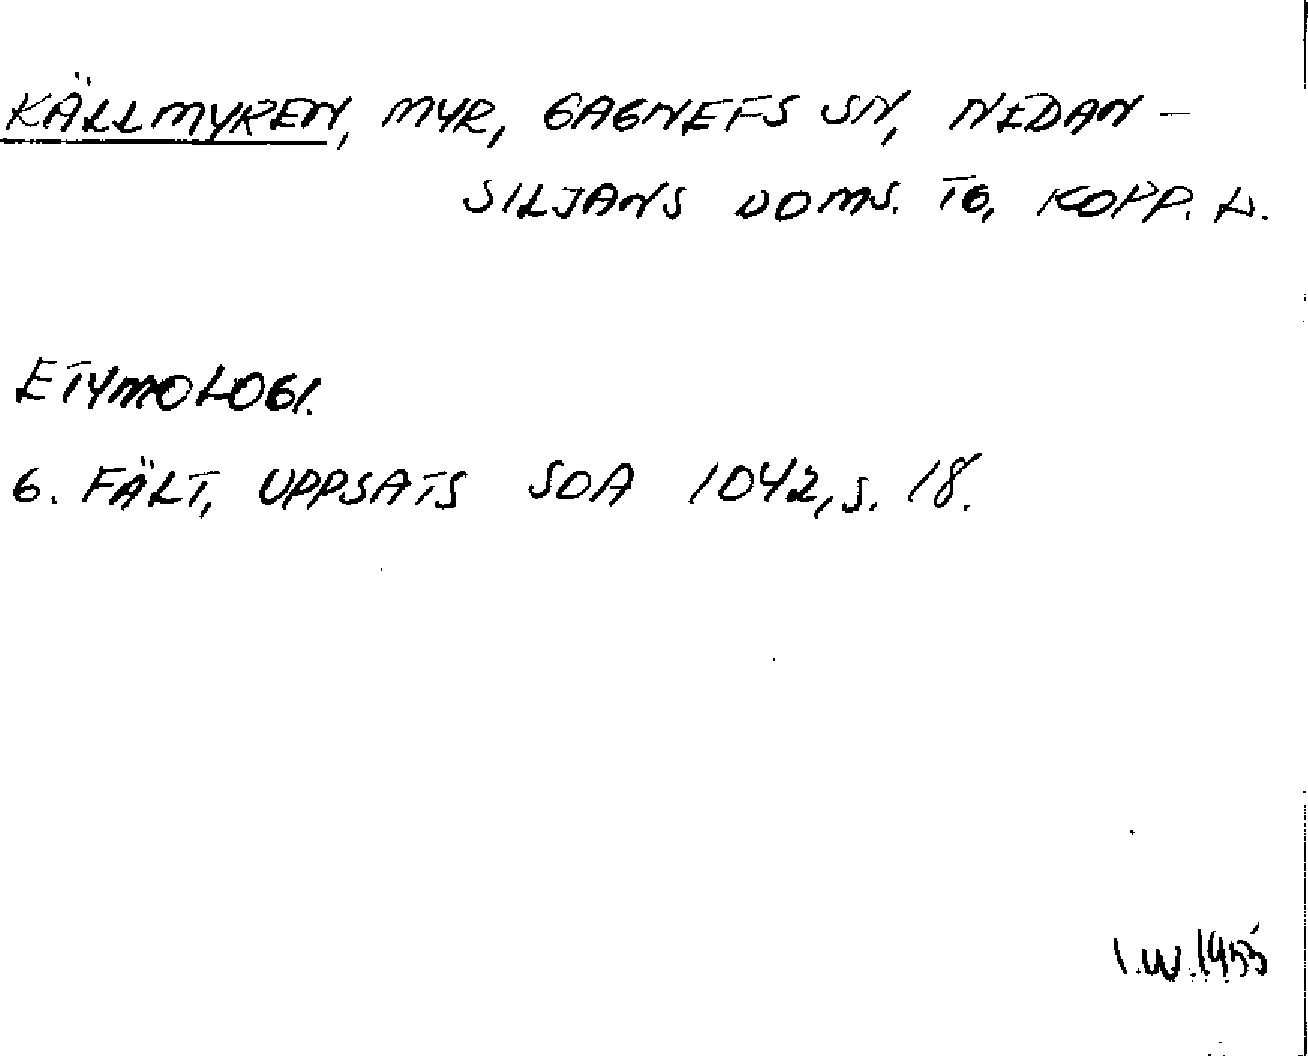 KÄLLMYREN, MYR, GAGNEFS SN, NEDAN-
SILJANS DOMS. TG, KOPP. L.
ETYMOLOGI.
G. FÄLT, UPPSATS SOA 1042, s. 18.
I.W.1955